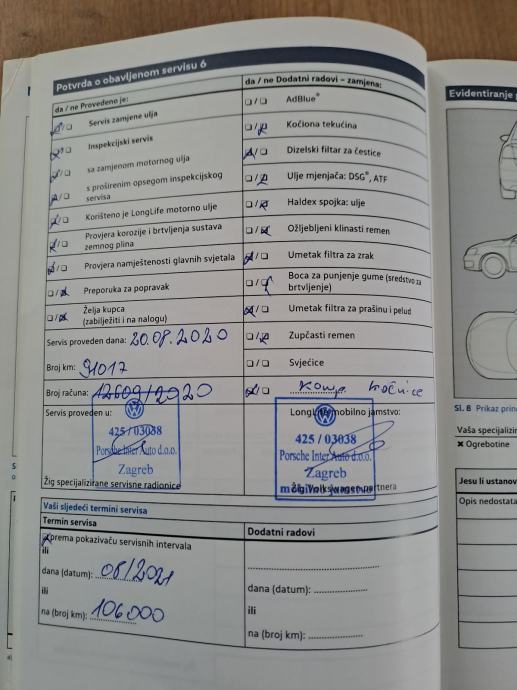 Potvrda o obavljenom servisu 6
da / ne Provedeno je:
Servis zamjene ulja
Inspekcijski servis
sa zamjenom motornog ulja
s proširenim opsegom inspekcijskog
servisa
Korišteno je LongLife motorno ulje
Provjera korozije i brtvljenja sustava
zemnog plina
Provjera namještenosti glavnih svjetala
Preporuka za popravak
Želja kupca
(zabilježiti i na nalogu)
Servis proveden dana: 20.08.2020
Broj km: 91017
Broj računa: 12609/2020
Servis proveden u:
425 / 03038
Porsche Inter Auto d.o.o.
Zagreb
Žig specijalizirane servisne radionice
da / ne Dodatni radovi – zamjena:
AdBlue®
Kočiona tekućina
Dizelski filtar za čestice
Ulje mjenjača: DSG®, ATF
Haldex spojka: ulje
Ožljebljeni klinasti remen
Umetak filtra za zrak
Boca za punjenje gume (sredstvo za
brtvljenje)
Umetak filtra za prašinu i pelud
Zupčasti remen
Svjećice
kočnice
LongLife mobilno jamstvo:
425 / 03038
Porsche Inter Auto d.o.o.
Zagreb
mobilno jamstvo
Žig Volkswagen partnera
Vaši sljedeći termini servisa
Termin servisa
prema pokazivaču servisnih intervala
ili
dana (datum): 08/2021
ili
na (broj km): 106000
Dodatni radovi
dana (datum):
ili
na (broj km):
Evidentiranje
Sl. 8 Prikaz
Vaša
✖ Ogrebotine
Jesu li
Opis